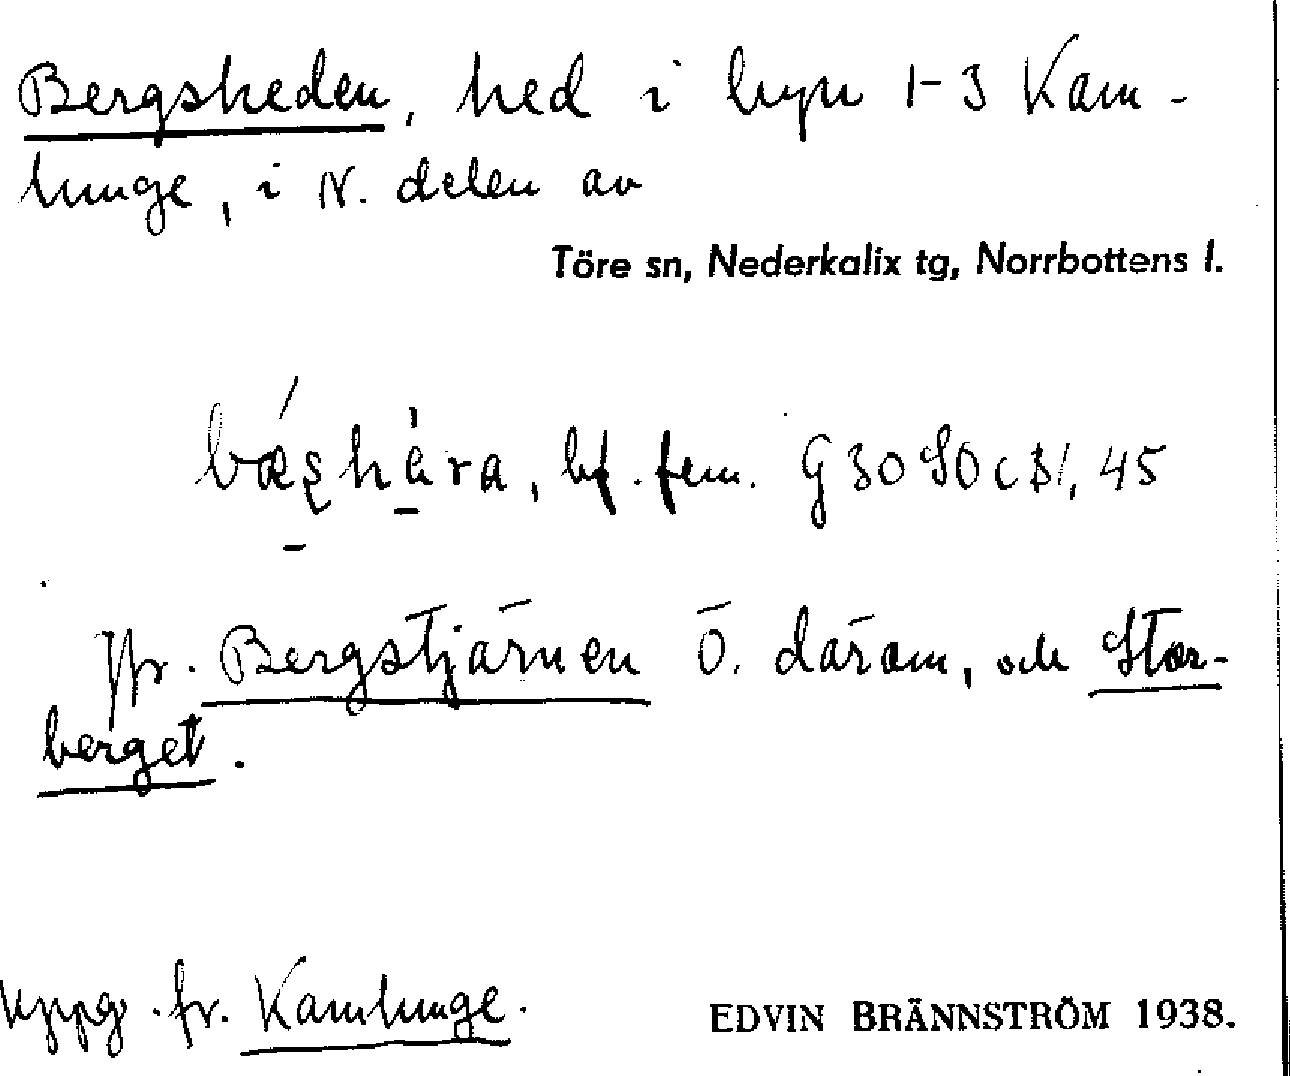 Bergsheden, hed i byn 1-3 Kam-
lunge, i N. delen av
Töre sn, Nederkalix tg, Norrbottens l.
bf. fem. G 30 SO c 31, 45
Jfr. Bergstjärnen Ö. därom, och Stor-
berget.
Uppg. fr. Kamlunge.
EDVIN BRÄNNSTRÖM 1938.